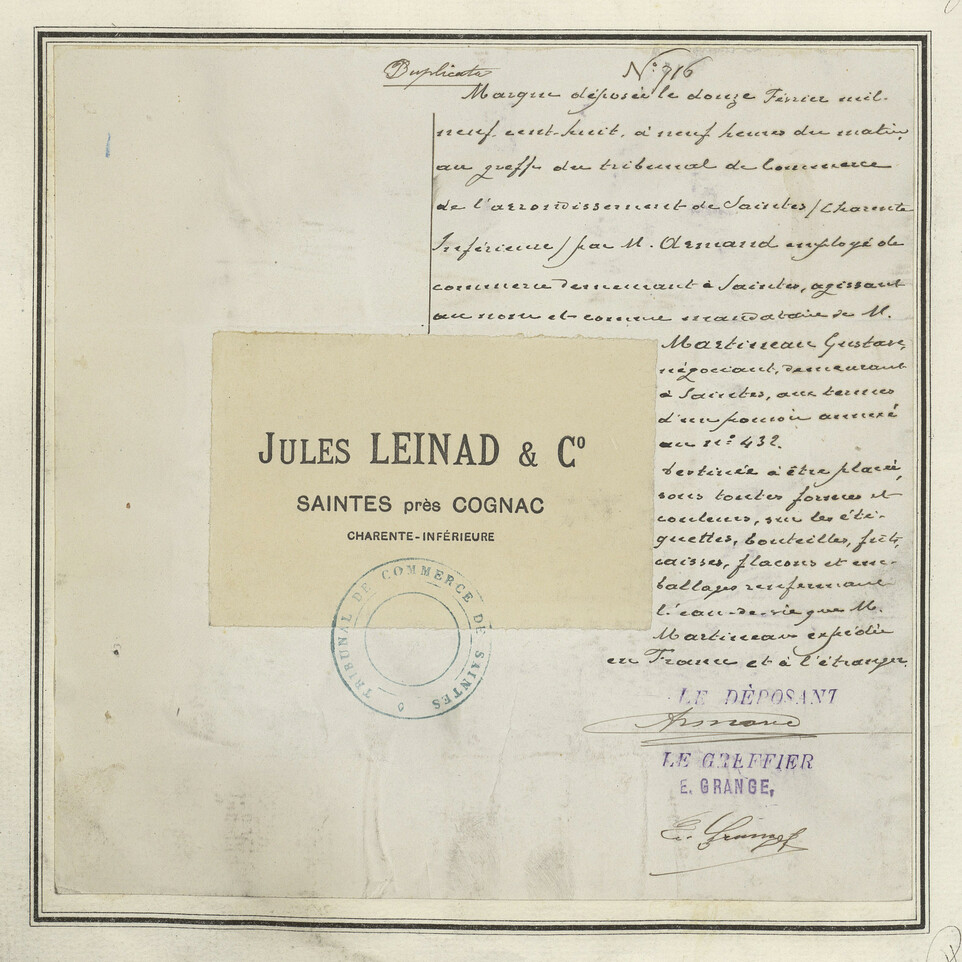 Duplicata
N° 716
Marque déposée le douze Février mil-
neuf-cent-huit, à neuf heures du matin,
au greffe du tribunal de Commerce
de l'arrondissement de Saintes / Charente
Inférieure / par M. Armand employé de
commerce demeurant à Saintes, agissant
au nom et comme mandataire de M.
Martineau Gustave,
négociant, demeurant
à Saintes, aux termes
d'un pouvoir annexé
au n° 432.
Destinée à être placée,
sous toutes formes et
couleurs, sur les éti-
quettes, bouteilles, fûts,
caisses, flacons et em-
ballages renfermant
l'eau-de-vie que M.
Martineau expédie
en France et à l'étranger.
JULES LEINAD & Cº
SAINTES près COGNAC
CHARENTE-INFÉRIEURE
TRIBUNAL DE COMMERCE DE SAINTES
LE DÉPOSANT
Armand
LE GREFFIER
E. GRANGE,
E. Grange